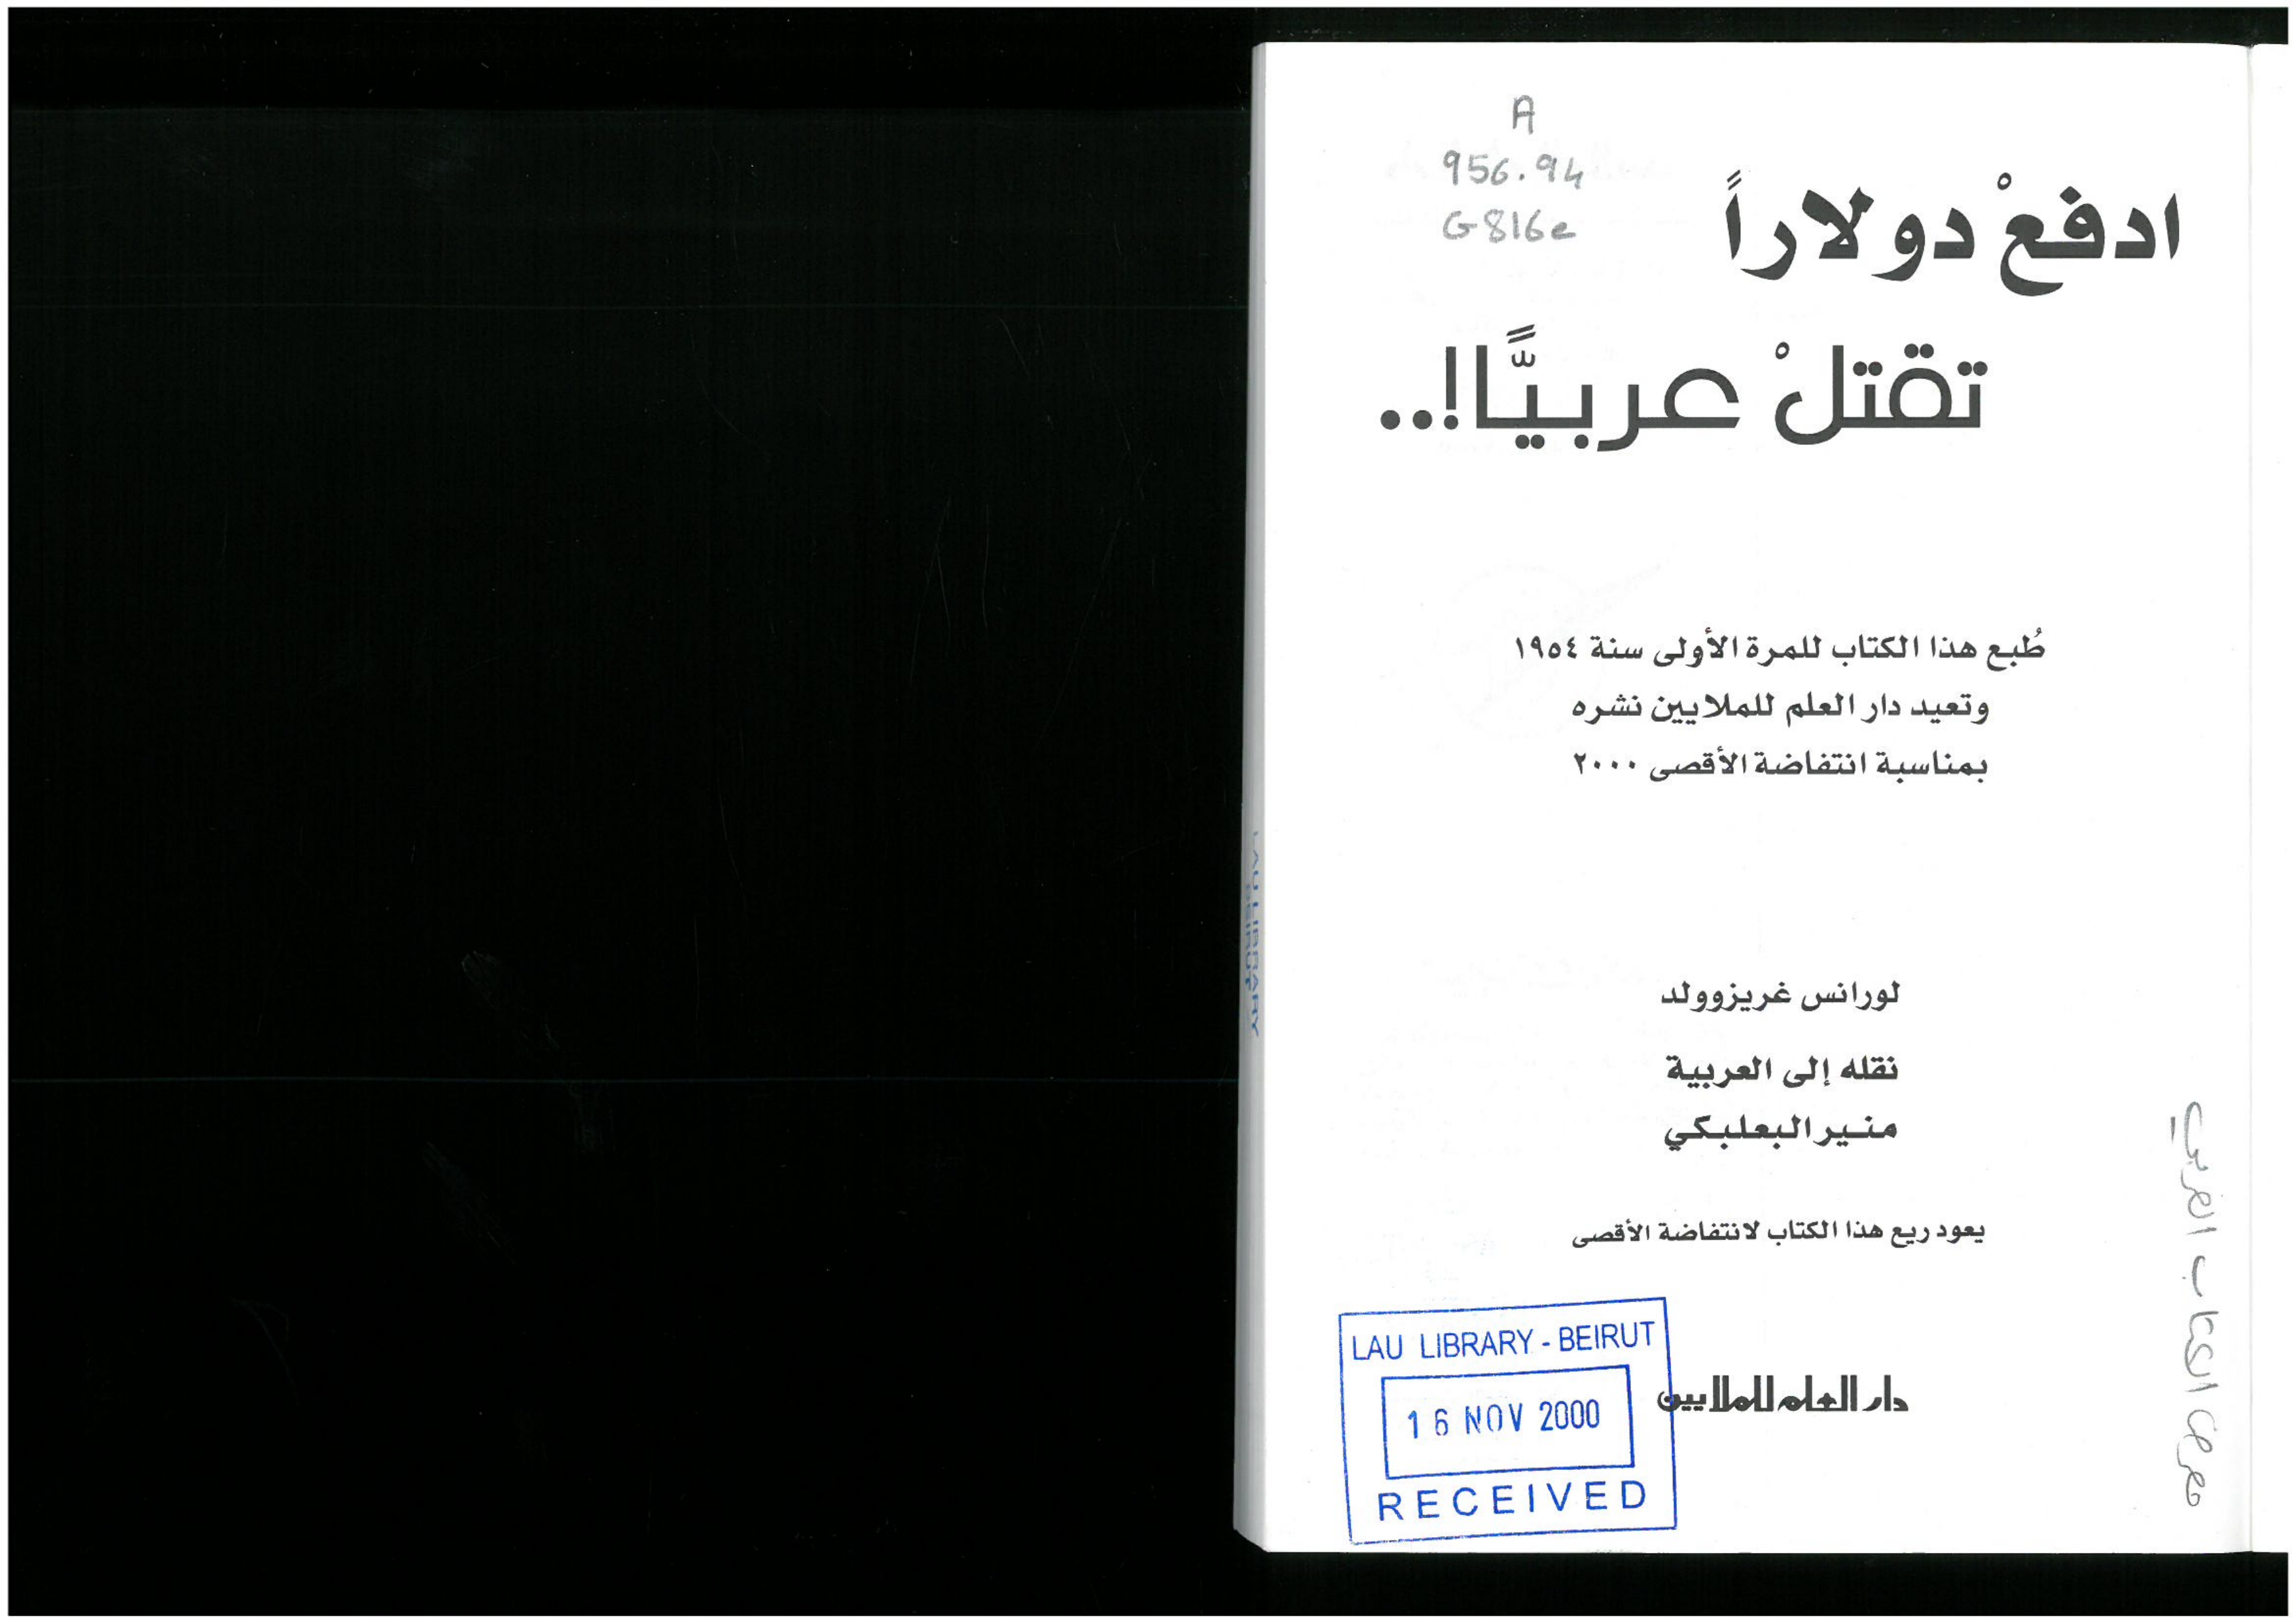 A
956.94
G816e
ادفعْ دولاراً
تقتلْ عربيًّا!..
طُبع هذا الكتاب للمرة الأولى سنة ١٩٥٤
وتعيد دار العلم للملايين نشره
بمناسبة انتفاضة الأقصى ٢٠٠٠
لورانس غريزوولد
نقله إلى العربية
منير البعلبكي
يعود ريع هذا الكتاب لانتفاضة الأقصى
دار العلم للملايين
LAU LIBRARY - BEIRUT
16 NOV 2000
RECEIVED
معرض الكتاب العربي
LAU LIBRARY
BEIRUT